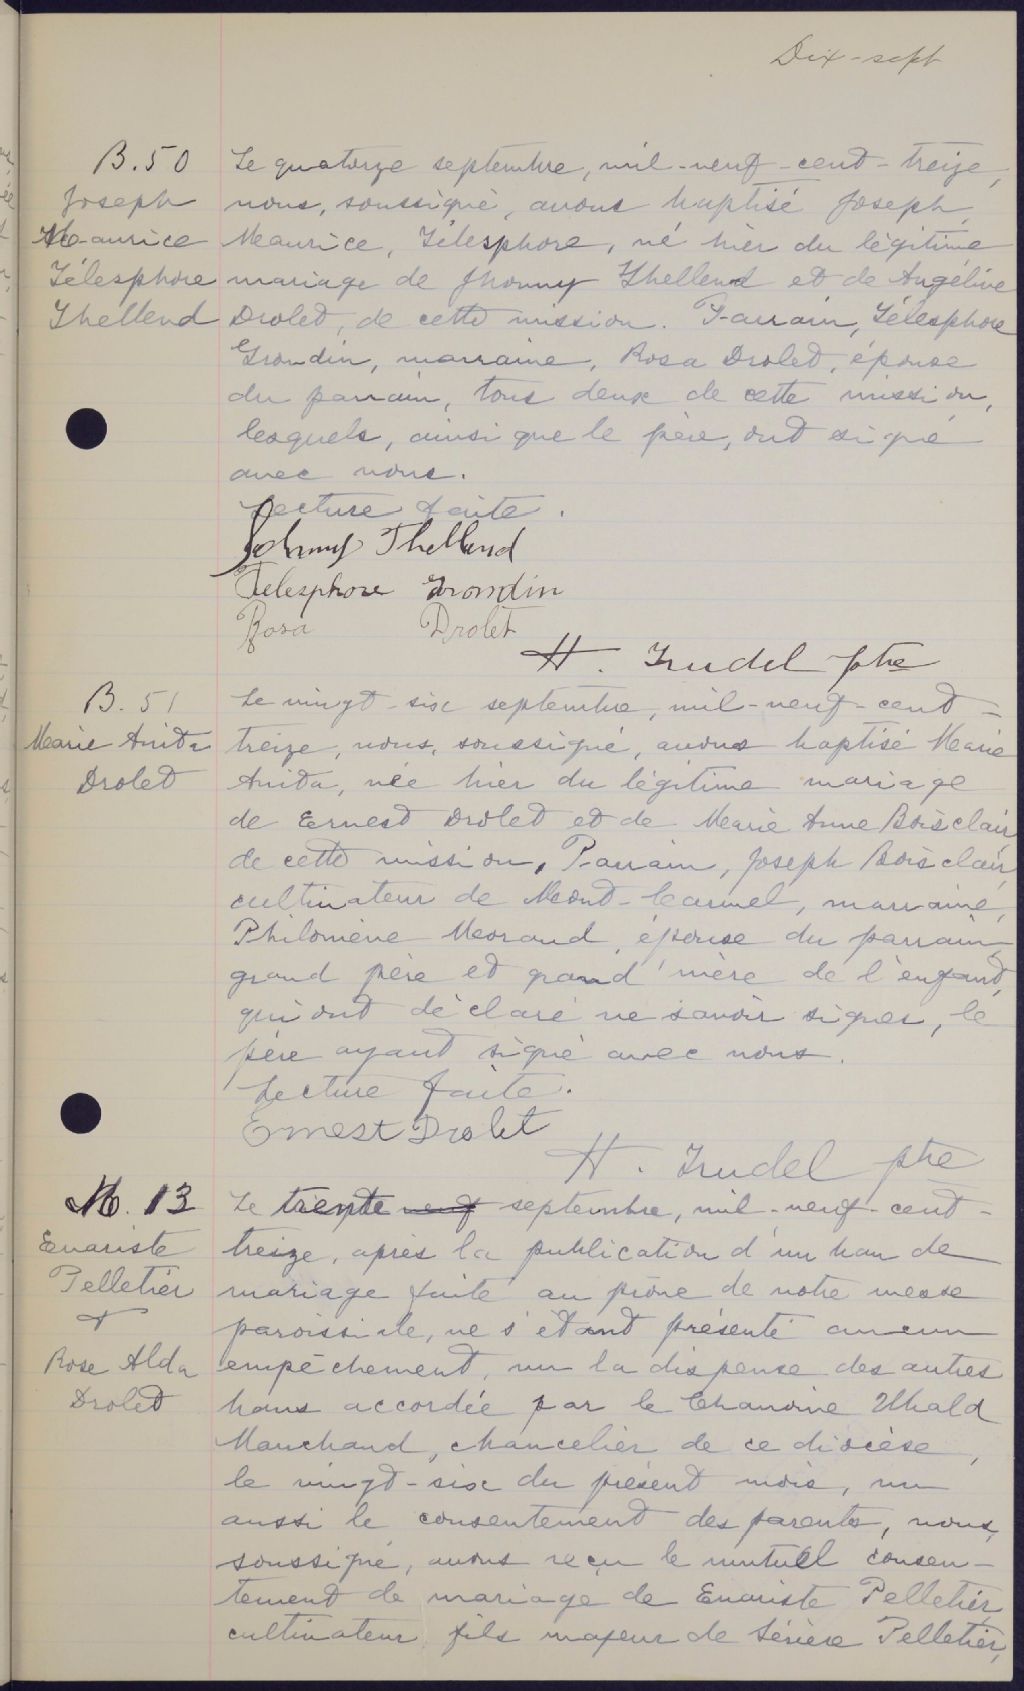 Dix-sept
B. 50
Joseph
Maurice
Télesphore
Thellend
Le quatorze septembre, mil-neuf-cent-treize,
nous, soussigné, avons baptisé Joseph,
Maurice, Télesphore, né hier du légitime
mariage de Jhonny Thellend et de Angéline
Drolet, de cette mission. Parrain, Télesphore
Grondin, marraine, Rosa Drolet, épouse
du parrain, tous deux de cette mission,
lesquels, ainsi que le père, ont signé
avec nous.
Lecture faite.
Johnny Thellend
Télesphore Grondin
Rosa Drolet
H. Trudel ptre
B. 51
Marie Anita
Drolet
Le vingt-six septembre, mil-neuf-cent-
treize, nous, soussigné, avons baptisé Marie
Anita, née hier du légitime mariage
de Ernest Drolet et de Marie Anne Boisclair
de cette mission, Parrain, Joseph Boisclair,
cultivateur de Mont-Carmel, marraine,
Philomène Morand, épouse du parrain,
grand père et grand'mère de l'enfant,
qui ont déclaré ne savoir signer, le
père ayant signé avec nous.
Lecture faite.
Ernest Drolet
H. Trudel ptre
M. 13
Evariste
Pelletier
+
Rose Alda
Drolet
Le trente neuf septembre, mil-neuf-cent-
treize, après la publication d'un ban de
mariage faite au prône de notre messe
paroissiale, ne s'étant présenté aucun
empêchement, vu la dispense des autres
bans accordée par le Chanoine Ubald
Marchand, chancelier de ce diocèse,
le vingt-six du présent mois, vu
aussi le consentement des parents, nous,
soussigné, avons reçu le mutuel consen-
tement de mariage de Evariste Pelletier,
cultivateur, fils majeur de Sévère Pelletier,